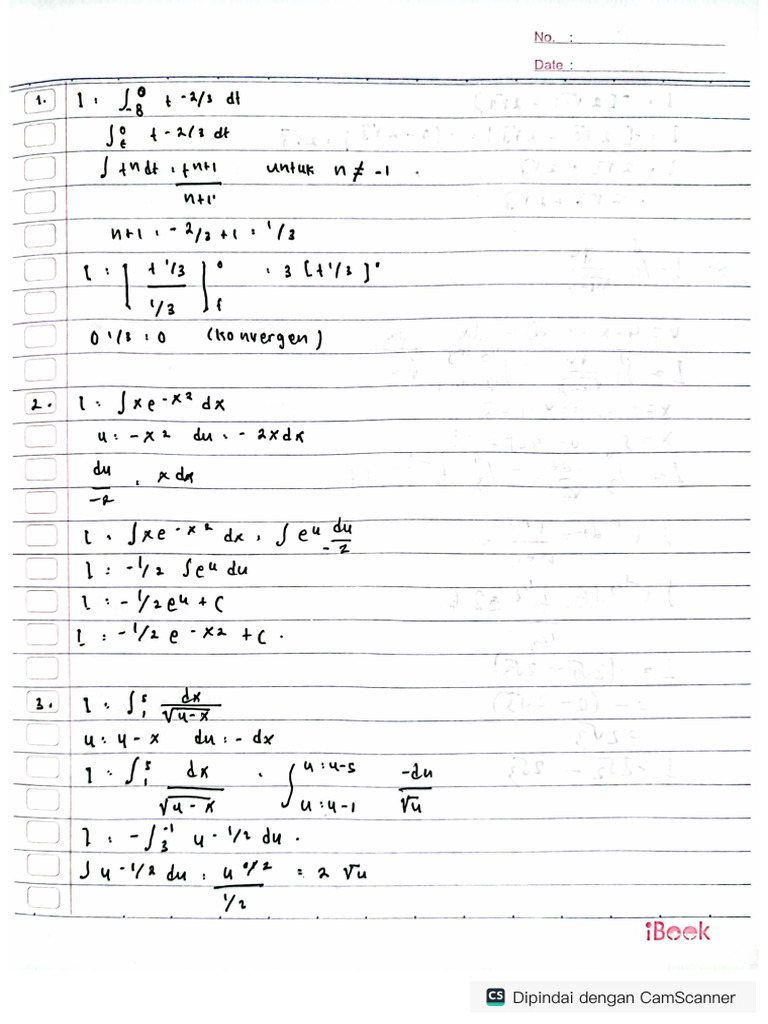 No. :
Date :
1. I : ∫₋₈⁰ t -2/3 dt
∫ₜ⁰ t - 2/3 dt
∫ tn dt : tn+1 / n+1 untuk n ≠ -1 .
n+1 : - 2/3 + 1 : 1/3
I : [ t 1/3 / 1/3 ]ₜ⁰ : 3 [ t 1/3 ]⁰
0 1/3 : 0 (konvergen)
2. I : ∫ x e -x² dx
u : -x² du : - 2x dx
du / -2 : x dx
I : ∫ x e -x² dx : ∫ eᵘ du / -2
I : -1/2 ∫ eᵘ du
I : -1/2 eᵘ + C
I : -1/2 e -x2 + C .
3. I : ∫₁⁵ dx / √4-x
u : 4 - x du : - dx
I : ∫₁⁵ dx / √4-x : ∫ u:4-5 u:4-1 -du / √u
I : - ∫₃⁻¹ u - 1/2 du .
∫ u -1/2 du : u / 1/2 = 2 √u
iBook
CS Dipindai dengan CamScanner